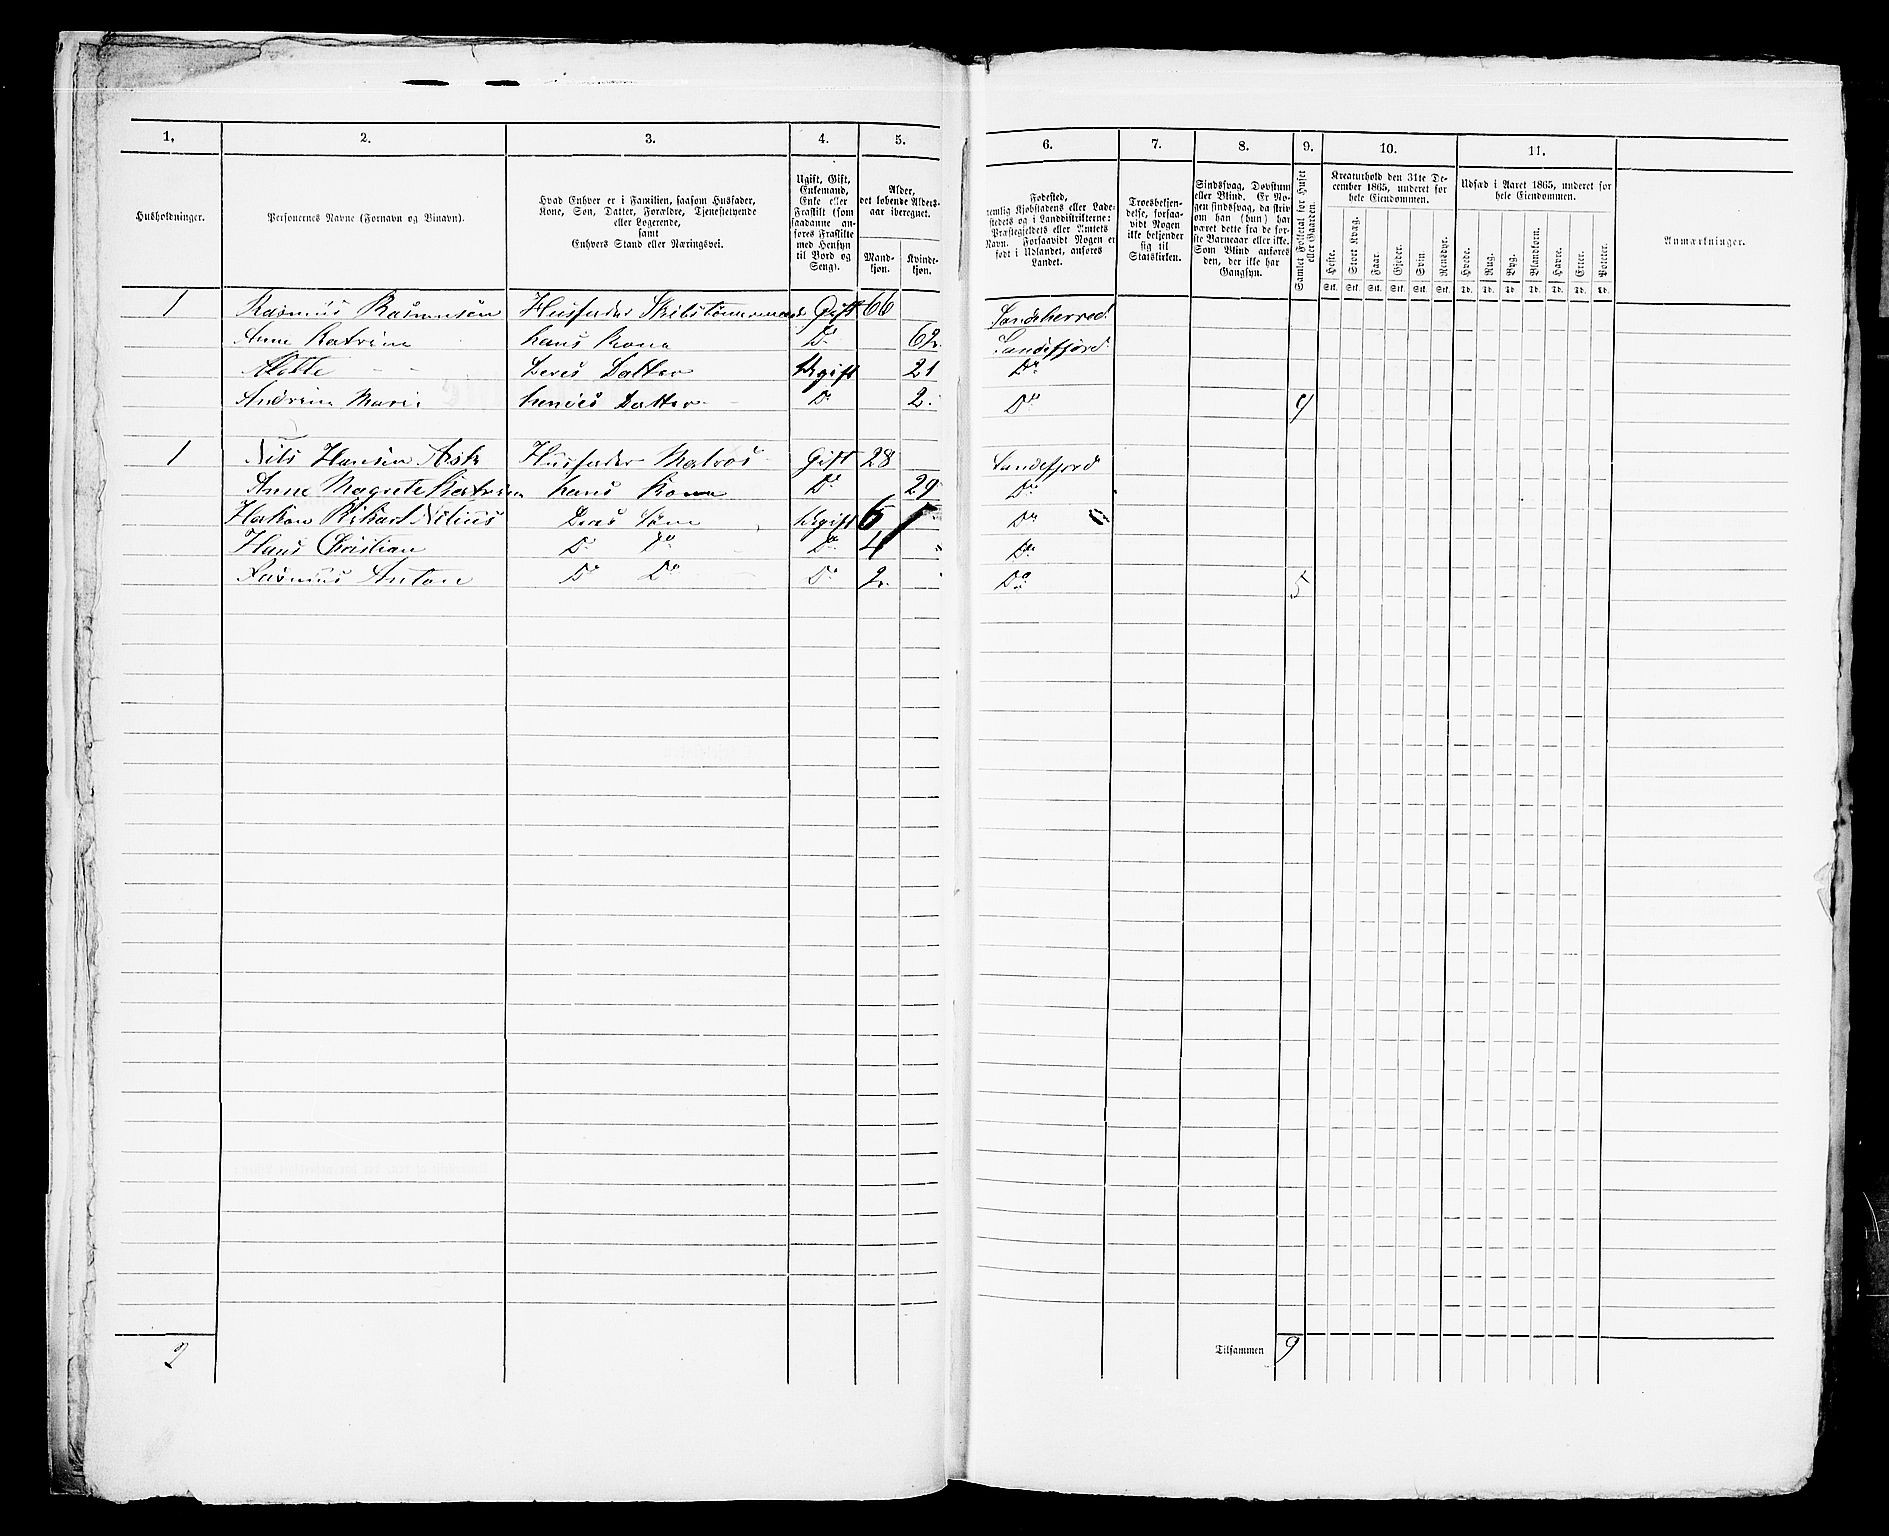 1. 2. 3. 4. 5. 6. 7. 8. 9. 10. 11.
Husholdninger.
Personernes Navne (Fornavn og Binavn).
Hvad Enhver er i Familien, saasom Husfader,
Kone, Søn, Datter, Forældre, Tjenestetyende
eller Logerende,
samt
Enhvers Stand eller Næringsvei.
Ugift, Gift,
Enkemand,
Enke eller
Fraskilt (som
saadanne an-
føres Fraskilte
med Hensyn
til Bord og
Seng).
Alder,
det løbende Alders-
aar iberegnet.
Mand-
kjøn.
Kvinde-
kjøn.
Fødested,
nemlig Kjøbstadens eller Lade-
stedets og i Landdistrikterne:
Præstegjeldets eller Amtets
Navn. Forsaavidt Nogen er
født i Udlandet, anføres
Landet.
Troesbekjen-
delse, forsaa-
vidt Nogen
ikke bekjender
sig til
Statskirken.
Sindssvag, Døvstum
eller Blind. Er No-
gen sindssvag, da skrives
om han (hun) har
været dette fra de før-
ste Barneaar eller ikke.
Som Blind anføres
den, der ikke har
Gangsyn.
Samlet Folketal for Huset
eller Gaarden.
Kreaturhold den 31te De-
cember 1865, underet for
hele Eiendommen.
Heste. Stort Kvæg. Faar. Gjeder. Svin. Rensdyr.
Stk. Stk. Stk. Stk. Stk. Stk.
Udsæd i Aaret 1865, underet for
hele Eiendommen.
Hvede. Rug. Byg. Blandkorn. Havre. Erter. Poteter.
Td. Td. Td. Td. Td. Td. Td.
Anmærkninger.
1 Rasmus Rasmusen Husfader Skibstømmermand Gift 66 Sandeherred
Anne Katrine hans Kone Do 62 Sandefjord
Deres Datter Ugift 21 Do
Andrine Marie hendes Datter Do 2 Do 4
1 Nils Hansen Husfader Matros Gift 28 Sandefjord
Anne Magrete Katrine hans Kone Do 29 Do
Hakon Rikart Nilius Deres Søn Ugift 6 Do
Hans Christian Do Do Do 4 Do
Rasmus Anton Do Do Do 2 Do 5
2 Tilsammen 9